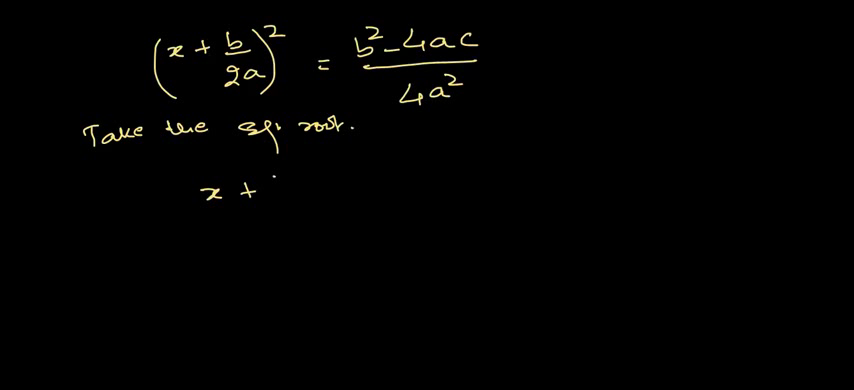 (x + b/2a)² = b² - 4ac / 4a²
Take the sq. root.
x +